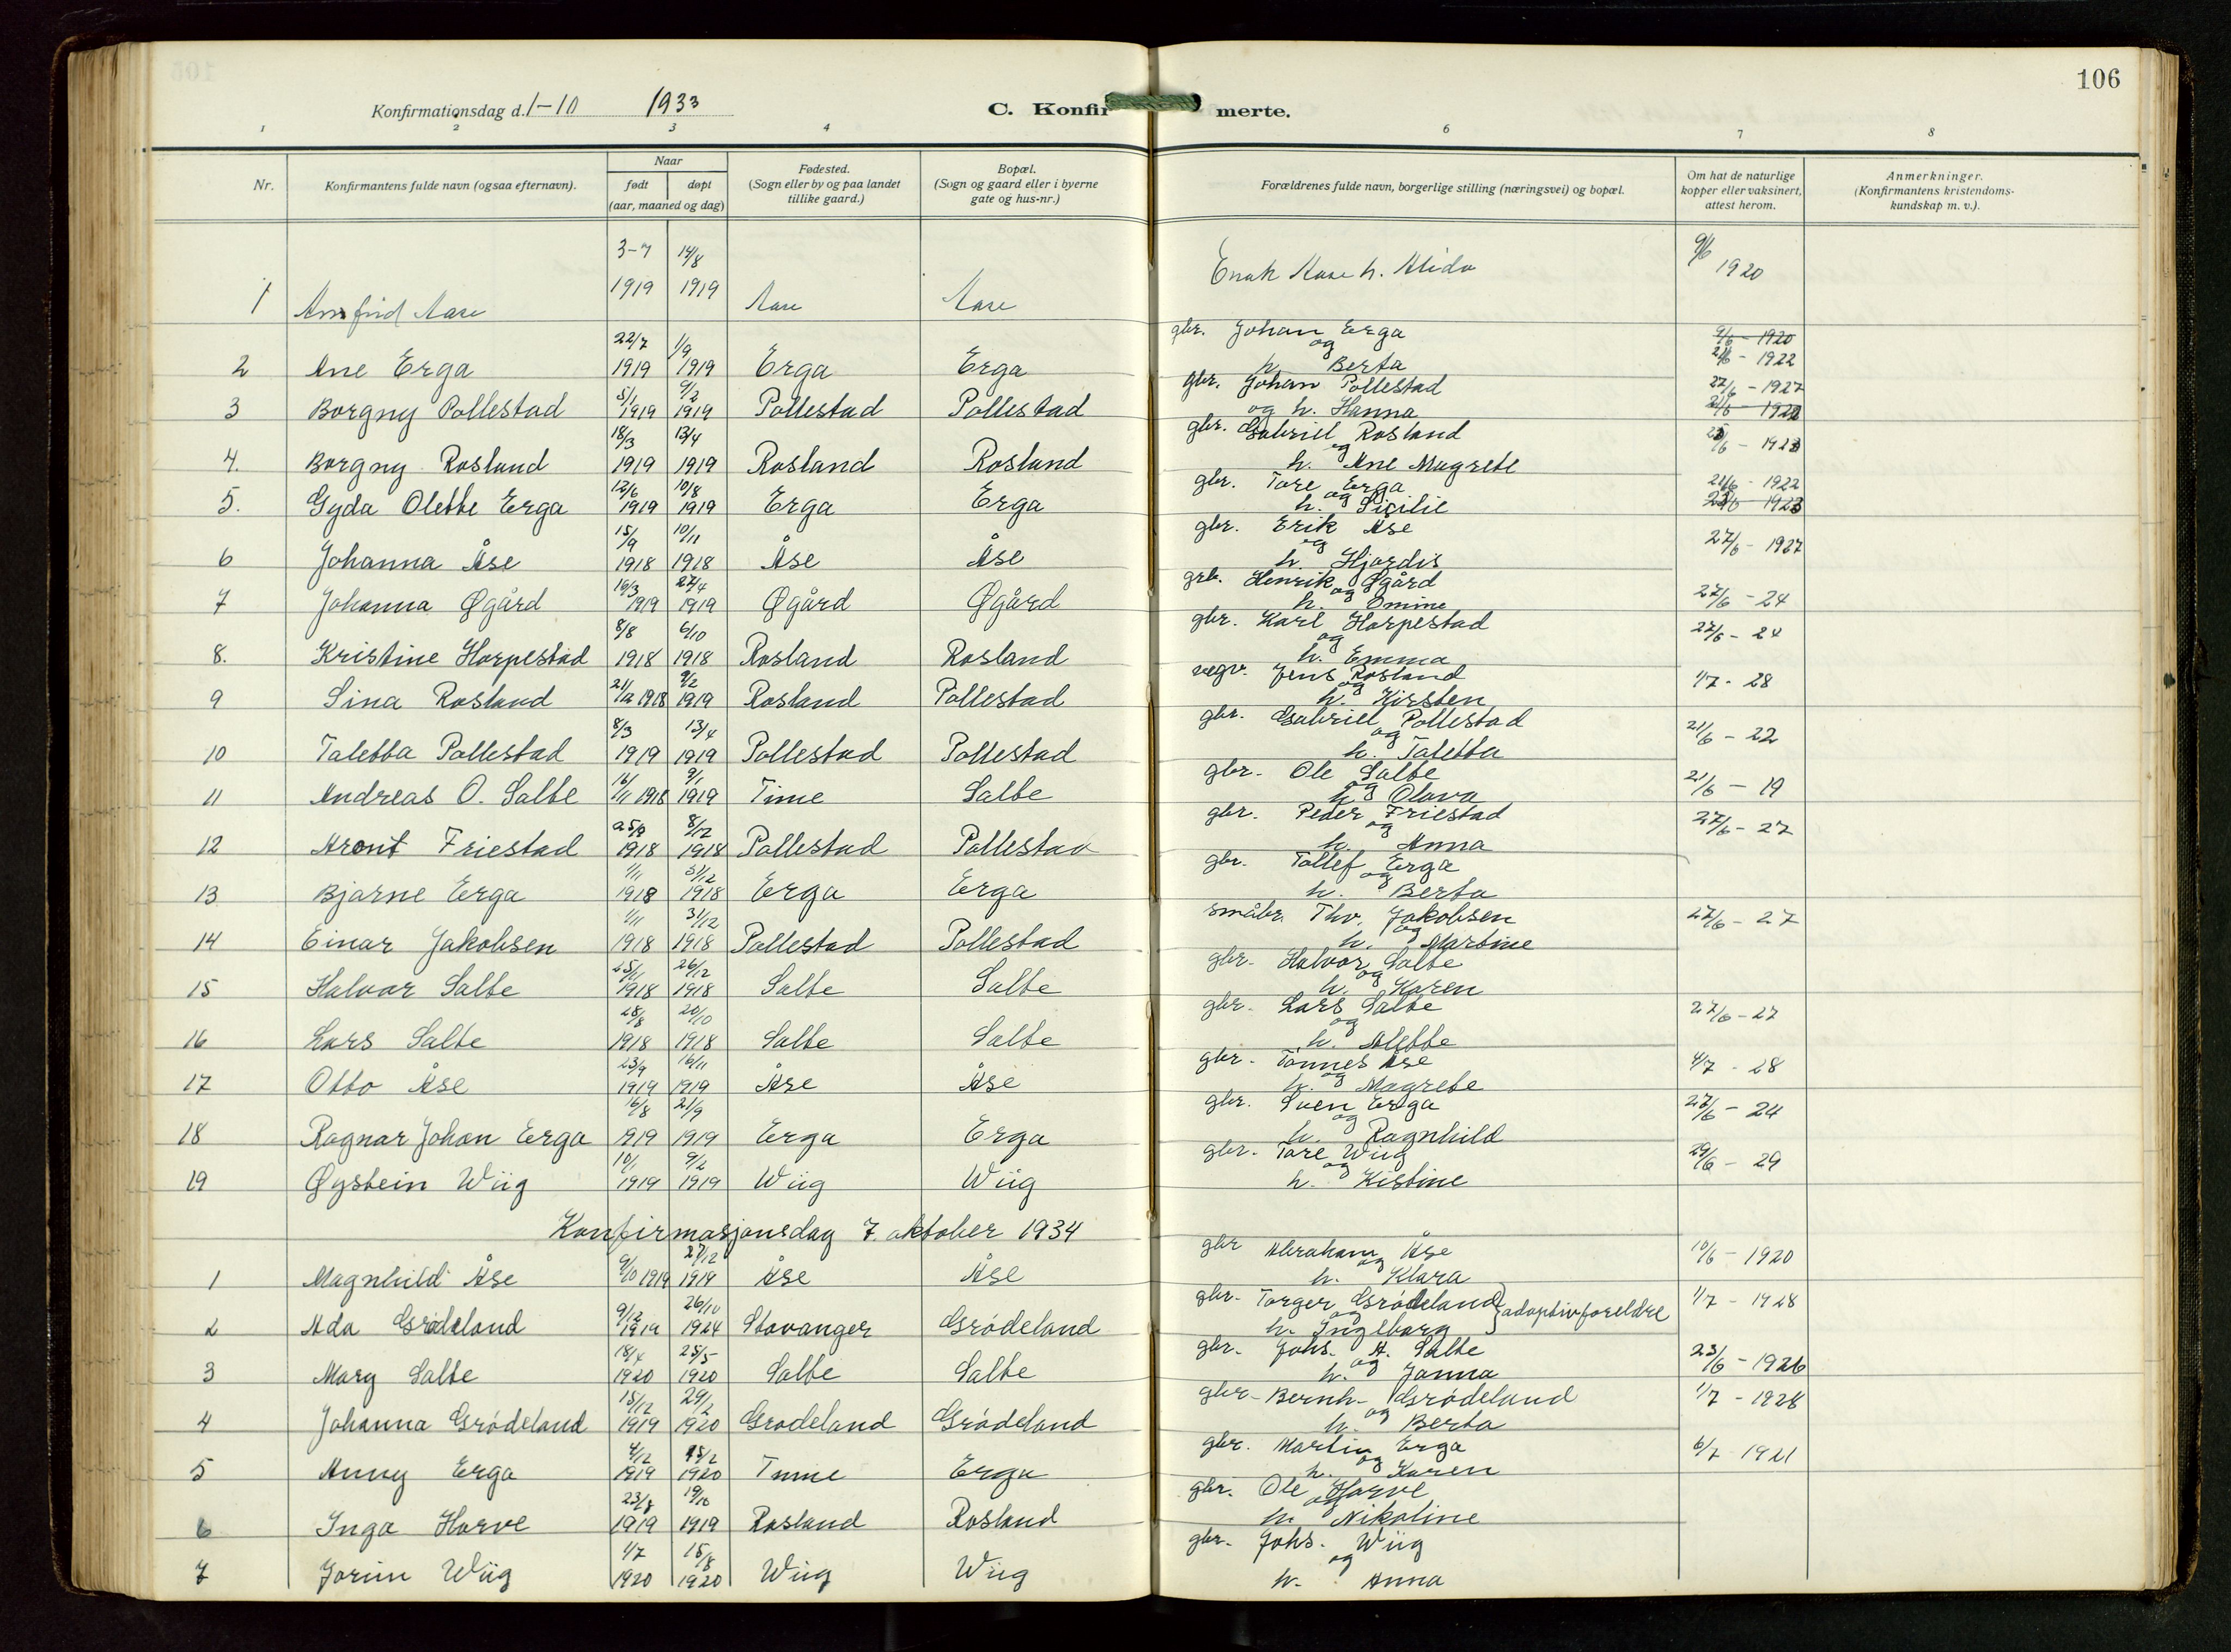 106
Konfirmationsdag d. 1-10 1933
C. Konfirmerte.
1 2 3 4 6 7 8
Nr. Konfirmantens fulde navn (ogsaa efternavn). Naar født døpt (aar, maaned og dag) Fødested. (Sogn eller by og paa landet tillike gaard.) Bopæl. (Sogn og gaard eller i byerne gate og hus-nr.) Forældrenes fulde navn, borgerlige stilling (næringsvei) og bopæl. Om hat de naturlige kopper eller vaksinert, attest herom. Anmerkninger. (Konfirmantens kristendomskundskap m. v.).
1 Aase 3-7 1919 14/8 1919 Aase Aase Enok Aase h. Alida 9/6 1920
2 Ane Erga 22/7 1919 1/9 1919 Erga Erga gbr. Johan Erga og h. Berta 9/6 - 1920 21/6 - 1922
3 Borgny Pollestad 5/1 1919 9/2 1919 Pollestad Pollestad gbr. Johan Pollestad og h. Hanna 27/6 - 1927 21/6 - 1922
4. Borgny Rosland 18/3 1919 13/4 1919 Rosland Rosland gbr. Gabriel Rosland og h. Ane Magrete 1923
5. Gyda Olette Erga 12/6 1919 10/8 1919 Erga Erga gbr. Tore Erga og h. Sicilie 21/6 - 1922 1923
6 Johanna Åse 15/9 1918 10/11 1918 Åse Åse gbr. Erik Åse og h. Hjørdis 27/6 - 1927
7 Johanna Øgård 16/3 1919 27/4 1919 Øgård Øgård grb. Henrik Øgård og h. Omine 27/6 - 24
8. Kristine Horpestad 8/8 1918 6/10 1918 Rosland Rosland gbr. Karl Horpestad og h. Emma 27/6 - 24
9 Sina Rosland 21/12 1918 9/2 1919 Rosland Pollestad vegv. Jens Rosland og h. Kirsten 1/7 - 28
10 Taletta Pollestad 8/3 1919 13/4 1919 Pollestad Pollestad gbr. Gabriel Pollestad og h. Taletta 21/6 - 22
11 Andreas O. Salte 16/11 1918 9/1 1919 Time Salte gbr. Ole Salte og h. Olava 21/6 - 19
12 Aront Friestad 1918 8/12 1918 Pollestad Pollestad gbr. Peder Friestad og h. Anna 27/6 - 27
13 Bjarne Erga 1/11 1918 31/12 1918 Erga Erga gbr. Tollef Erga og h. Berta
14 Einar Jakobsen 1/11 1918 31/12 1918 Pollestad Pollestad småbr. Thv. Jakobsen og h. Martine 27/6 - 27
15 Halvar Salte 25/11 1918 26/12 1918 Salte Salte gbr. Halvor Salte og h. Karen
16 Lars Salte 28/8 1918 20/10 1918 Salte Salte gbr. Lars Salte og h. Alette 27/6 - 27
17 Otto Åse 23/9 1919 16/11 1919 Åse Åse gbr. Tønnes Åse og h. Magrete 4/7 - 28
18 Ragnar Johan Erga 16/8 1919 21/9 1919 Erga Erga gbr. Sven Erga og h. Ragnhild 27/6 - 24
19 Øystein Wiig 10/1 1919 9/2 1919 Wiig Wiig gbr. Tore Wiig og h. Kistine 29/6 - 29
Konfirmasjonsdag 7. oktober 1934
1 Magnhild Åse 9/10 1919 27/12 1919 Åse Åse gbr Abraham Åse og h. Klara 10/6 - 1920
2 Ada Grødeland 9/12 1919 26/10 1924 Stavanger Grødeland gbr. Torger Grødeland og h. Ingeborg } adoptivforeldre 1/7 - 1928
3 Mary Salte 18/4 1920 25/5 1920 Salte Salte gbr. Johs. A. Salte og h. Janna 23/6 - 1926
4 Johanna Grødeland 15/12 1919 29/2 1920 Grødeland Grødeland gbr. Bernh. Grødeland og h. Berta 1/7 - 1928
5 Anny Erga 4/12 1919 15/2 1920 Time Erga gbr. Martin Erga og h. Karen 6/7 1921
6 Inga Horve 23/8 1919 19/10 1919 Rosland Rosland gbr. Ole Horve og h. Nikoline
7 Jorun Wiig 1/7 1920 15/8 1920 Wiig Wiig gbr. Johs. Wiig og h. Anna